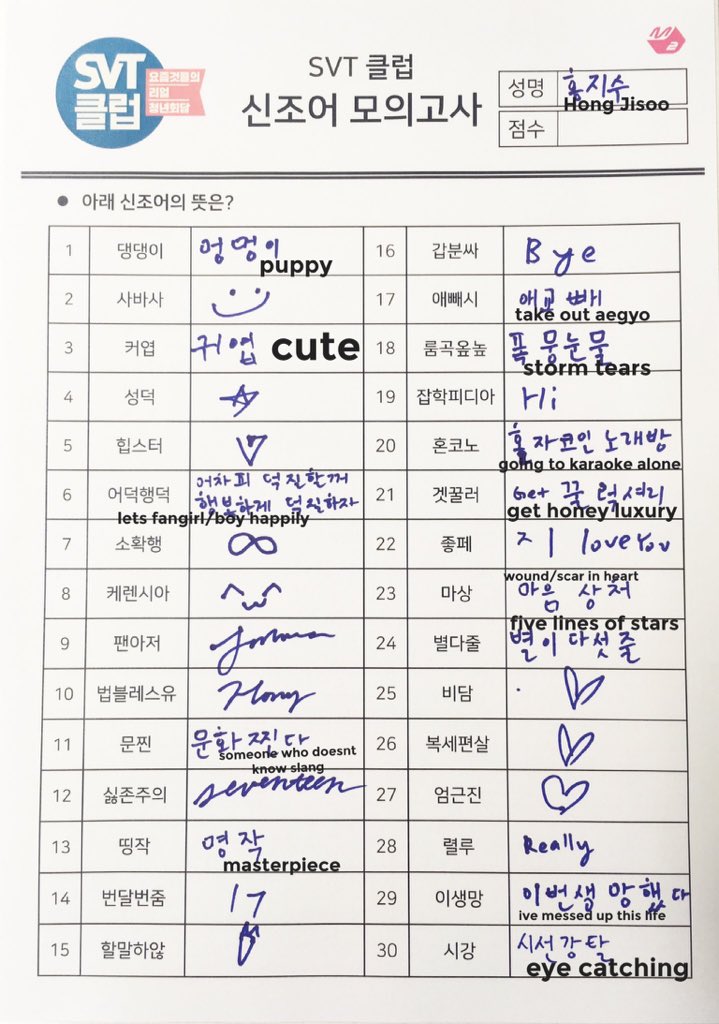 SVT
클럽
요즘것들의
리얼
청년회담
SVT 클럽
신조어 모의고사
M2
성명 홍지수
Hong Jisoo
점수
● 아래 신조어의 뜻은?
1 댕댕이 멍멍이
puppy
2 사바사
3 커엽 귀엽 cute
4 성덕
5 힙스터
6 어덕행덕 어차피 덕질할꺼
행복하게 덕질하자
lets fangirl/boy happily
7 소확행
8 케렌시아
9 팬아저 Joshua
10 법블레스유 Hong
11 문찐 문화 찐다
someone who doesnt
know slang
12 싫존주의 seventeen
13 띵작 명작
masterpiece
14 번달번줌 17
15 할말하않
16 갑분싸 Bye
17 애빼시 애교 빼
take out aegyo
18 룸곡옾높 폭풍눈물
storm tears
19 잡학피디아 Hi
20 혼코노 혼자코인 노래방
going to karaoke alone
21 겟꿀러 Get 꿀 럭셔리
get honey luxury
22 좋페 I love You
wound/scar in heart
23 마상 마음 상처
five lines of stars
24 별다줄 별이 다섯 줄
25 비담
26 복세편살
27 엄근진
28 렬루 Really
29 이생망 이번생 망했다
ive messed up this life
30 시강 시선강탈
eye catching